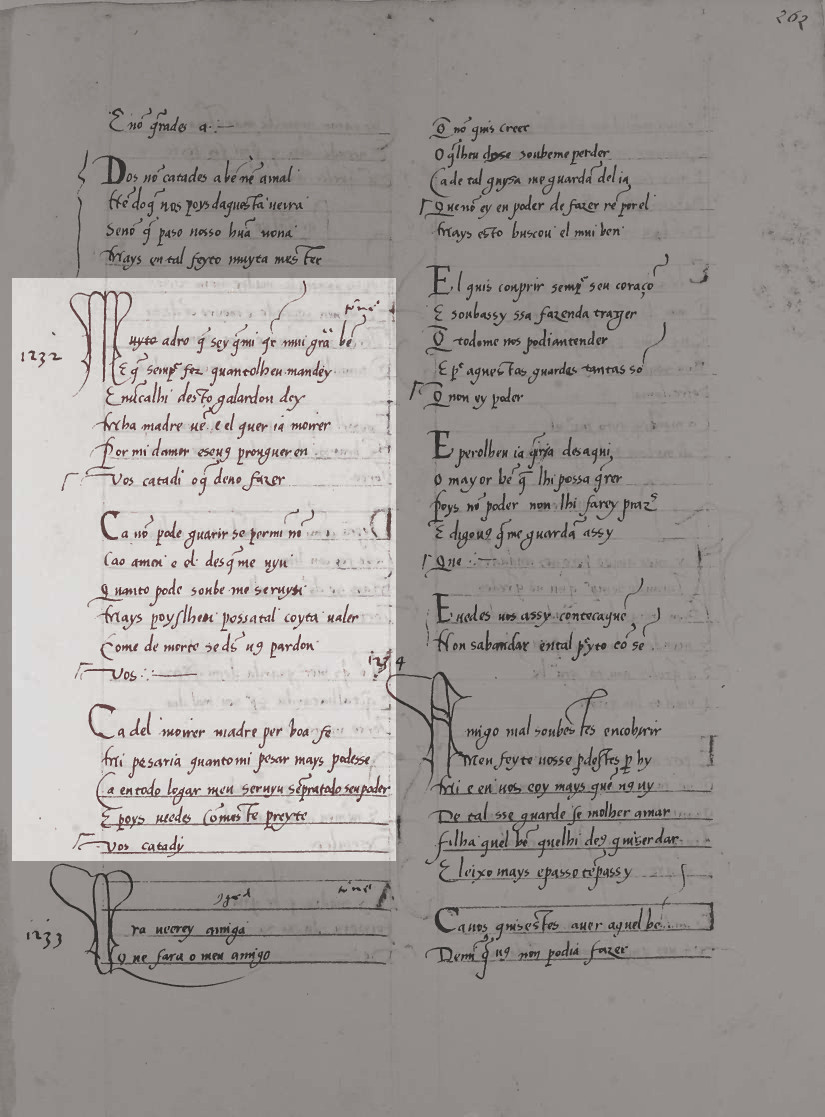 262
E nõ g̃rades a:—
Vos nõ catades a bẽ nẽ a mal
Nẽ do q̃ nos poys daquesta ueirra
Senõ q̃ paso nosso hũa uona
Mays en tal feyto muyta mester
1232
Muyto adro q̃ sey q̃mi q̃r mui grã bẽ
E q̃ sempr̃ fez quantolheu mandey
E nũcalhi desto galardon dey
Mha madre uẽ. e el quer ia moirer
Por mi damor e seu9 prouguer en
Vos catadi o q̃ deuo fazer
Ca nõ pode guarir se per mi nõ
Ca o amei e el des q̃ me uyu
Quanto pode soube me seruyr
Mays poys lheu possatal coyta ualer
Come de morte se ds̃ u9 pardon
Vos:—
Ca del moirer madre per boa fe
Mi pesaria quantomi pesar mays podesse
Ca en todo logar meu seruyu sẽpratodo seu poder
E poys ueedes comeste preyto
Vos catady
1233
Ora ueerey amiga
Que fara o meu amigo
Q̃ nõ quis creer
O q̃lheu disse soubeme perder
Ca de tal guysa me guardã del ia
Que nõ ey en poder de fazer rẽ por el
Mays esto buscou el mui ben
El quis conprir sempr̃ seu coraçõ
E soubassy ssa fazenda trager
Q̃ todome nos podiantender
E pr̃ aquestas guardas tantas sõ
Q̃ non ey poder
E perolheu ia q̃rria des aqui
o mayor bẽ q̃ lhi possa q̃rer
Poys nõ poder non lhi farey praz̃
E digou9 q̃ me guardã assy
Que:—
E uedes uos assy contecaque
Non sabandar en tal pr̃yto cõ sẽ
1234
Amigo mal soubestes encobrir
Meu feyte uosse p̃destes p̃ hy
Mi e eu uos ey mays quẽ u9 uy
De tal sse guarde se molher amar
filha quel bẽ quelhi de9 quiser dar
E leixo mays e passo tẽpassy
Ca uos quisestes auer aquel bẽ
Demi q̃ u9 non podia fazer